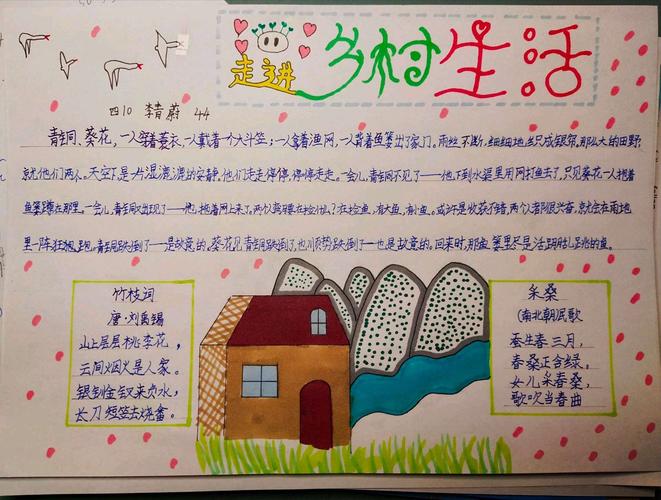 走进乡村生活
四10 李青蔚 44
青铜、葵花,一人穿着蓑衣,一人戴着一个大斗笠;一人拿着渔网,一人背着鱼篓出了家门。雨丝不断,细细地丝只成银帘,那么大的田野,
就他们两个人。天空下是一片湿漉漉的安静,他们走走停停,停停走走。一会儿,青铜不见了——他下到水渠里用网打鱼去了,只见葵花一人抱着
鱼篓蹲在那里。一会儿,青铜又出现了——他抱着网上来了。两个人在捡什么?在捡鱼,有大鱼,有小鱼。或许是收获不错,两个人都很兴奋,就会在雨地
里一阵狂跑。青铜跌倒了一是故意的。葵花见青铜跌倒了,也顺势跌倒了一也是故意的。回来时,那鱼篓里尽是活蹦乱跳的鱼。
竹枝词
唐·刘禹锡
山上层层桃李花,
云间烟火是人家。
银钏金钗来负水,
长刀短笠去烧畲。
采桑
(南北朝民歌
蚕生春三月,
春桑正含绿,
女儿采春桑,
歌吹当春曲